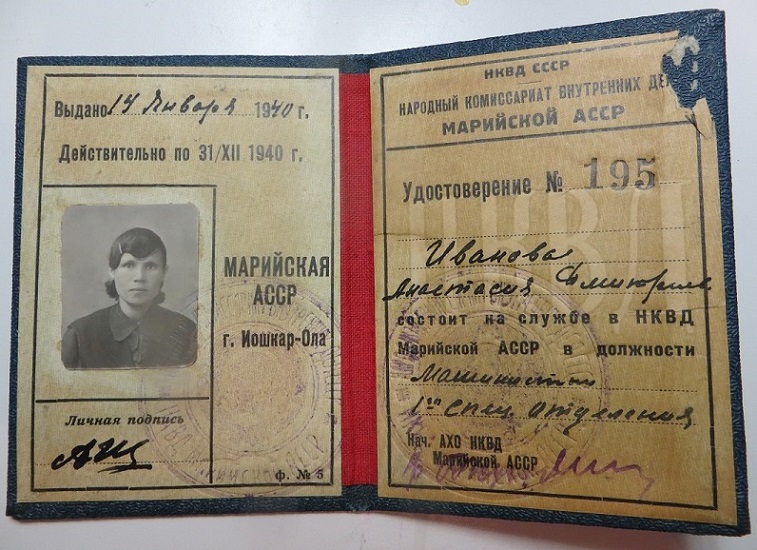 Выдано 14 Января 1940 г.
Действительно по 31/XII 1940 г.
МАРИЙСКАЯ
АССР
г. Йошкар-Ола
Личная подпись
ф. № 5
НКВД СССР
НАРОДНЫЙ КОМИССАРИАТ ВНУТРЕННИХ ДЕ
МАРИЙСКОЙ АССР
Удостоверение № 195
Иванова
Анастасия Дмитриев
состоит на службе в НКВД
Марийской АССР в должности
Машинистки
1го спец отделения
Нач. АХО НКВД
Марийской АССР